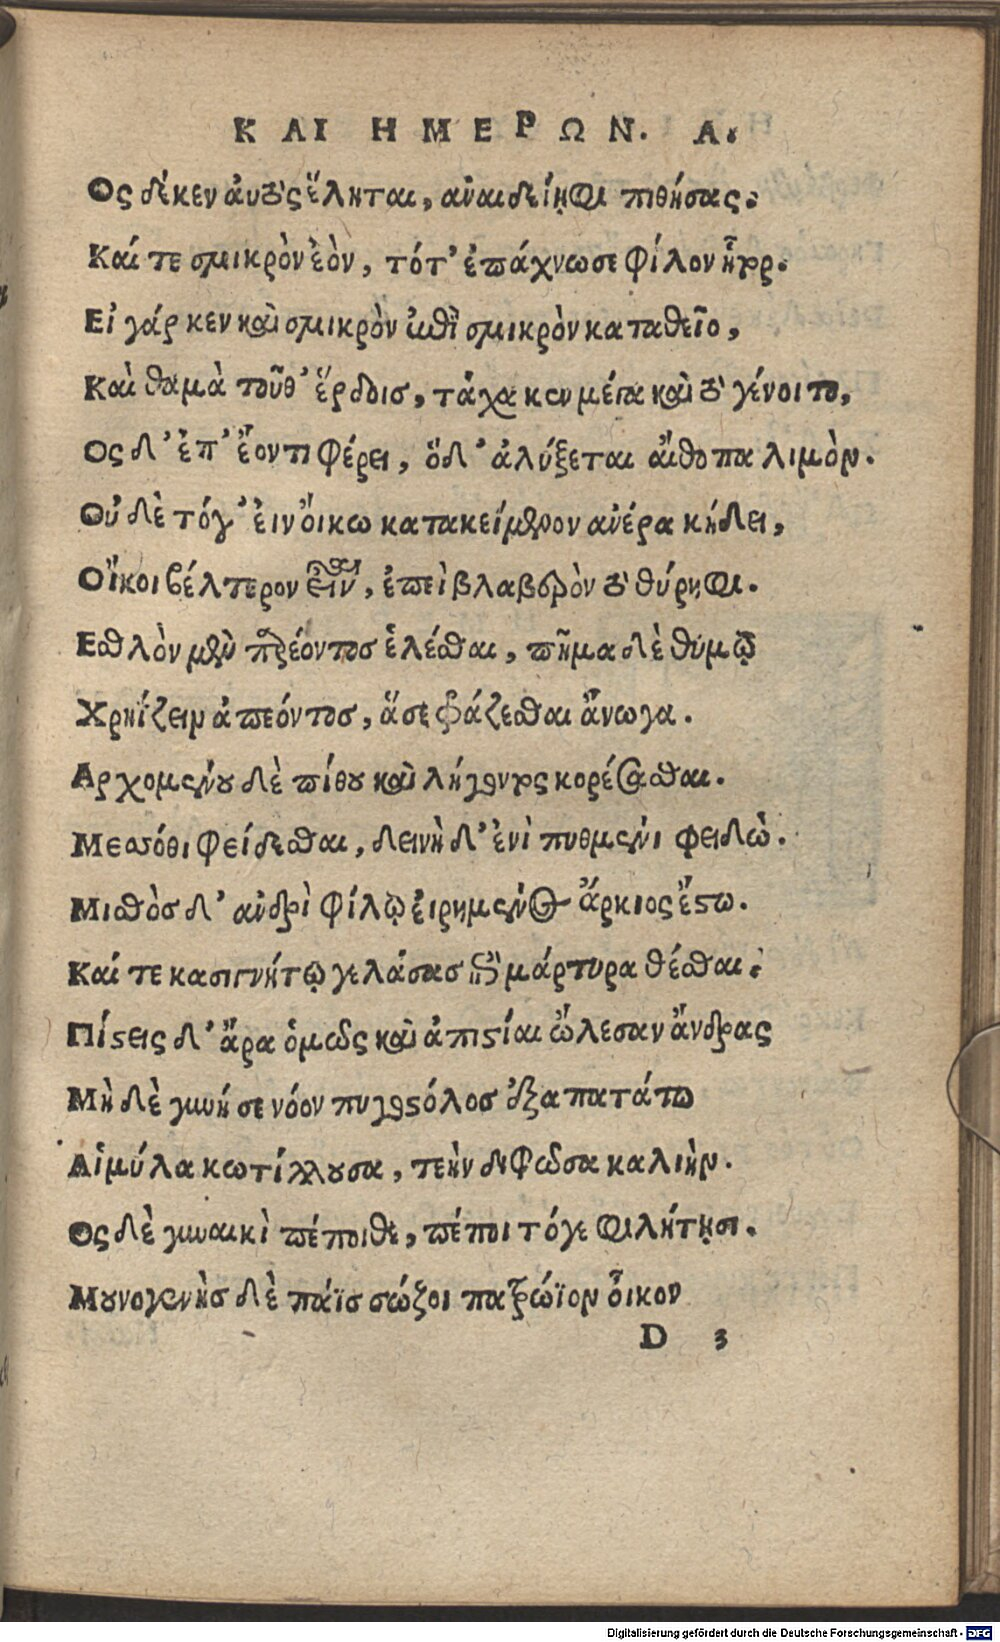 ΚΑΙ ΗΜΕΡΩΝ. Α.
Ος δέ κεν ἀυτὸς ἕληται, αὐαιδείηφι πιθήσας.
Καί τε σμικρὸν ἐὸν, τότ' ἐπάχνωσε φίλον ἦτορ.
Εἰ γάρ κεν καὶ σμικρὸν ἐπὶ σμικρὸν καταθεῖο,
Καὶ θαμὰ τοῦθ' ἕρδοις, τάχα κεν μέγα καὶ τὸ γένοιτο,
Ος δ' ἐπ' ἐόντι φέρει, ὅδ' ἀλύξεται αἴθοπα λιμόν.
Οὐδὲ τόγ' ἐιν ὄικω κατακείμενον ἀνέρα κήδει,
Οἴκοι βέλτερον εἶναι, ἐπεὶ βλαβερὸν τὸ θύρηφι.
Εσθλὸν μὲν παρεόντος ἑλέσθαι, πῆμα δὲ θυμῷ
Χρηΐζειν ἀπεόντος, ἅ σε φράζεσθαι ἄνωγα.
Αρχομένου δὲ πίθου καὶ λήγοντος κορέσασθαι.
Μεσσόθι φείδεσθαι, δεινὴ δ' ἐνὶ πυθμένι φειδώ.
Μισθὸς δ' ανδρὶ φίλῳ ἐιρημένος ἄρκιος ἔστω.
Καί τε κασιγνήτῳ γελάσας ἐπὶ μάρτυρα θέσθαι.
Πίστεις δ' ἄρα ὁμῶς καὶ ἀπιστίαι ὤλεσαν ἄνδρας
Μὴ δὲ γυνή σε νόον πυγοστόλος ἐξαπατάτω
Αἱμύλα κωτίλλουσα, τεὴν διφῶσα καλιήν.
Ος δὲ γυναικὶ πέποιθε, πέποι τόγε φιλήτῃσι.
Μουνογενὴς δὲ πάϊς σώζοι πατρώϊον ὄικον
D 3
Digitalisierung gefördert durch die Deutsche Forschungsgemeinschaft - DFG